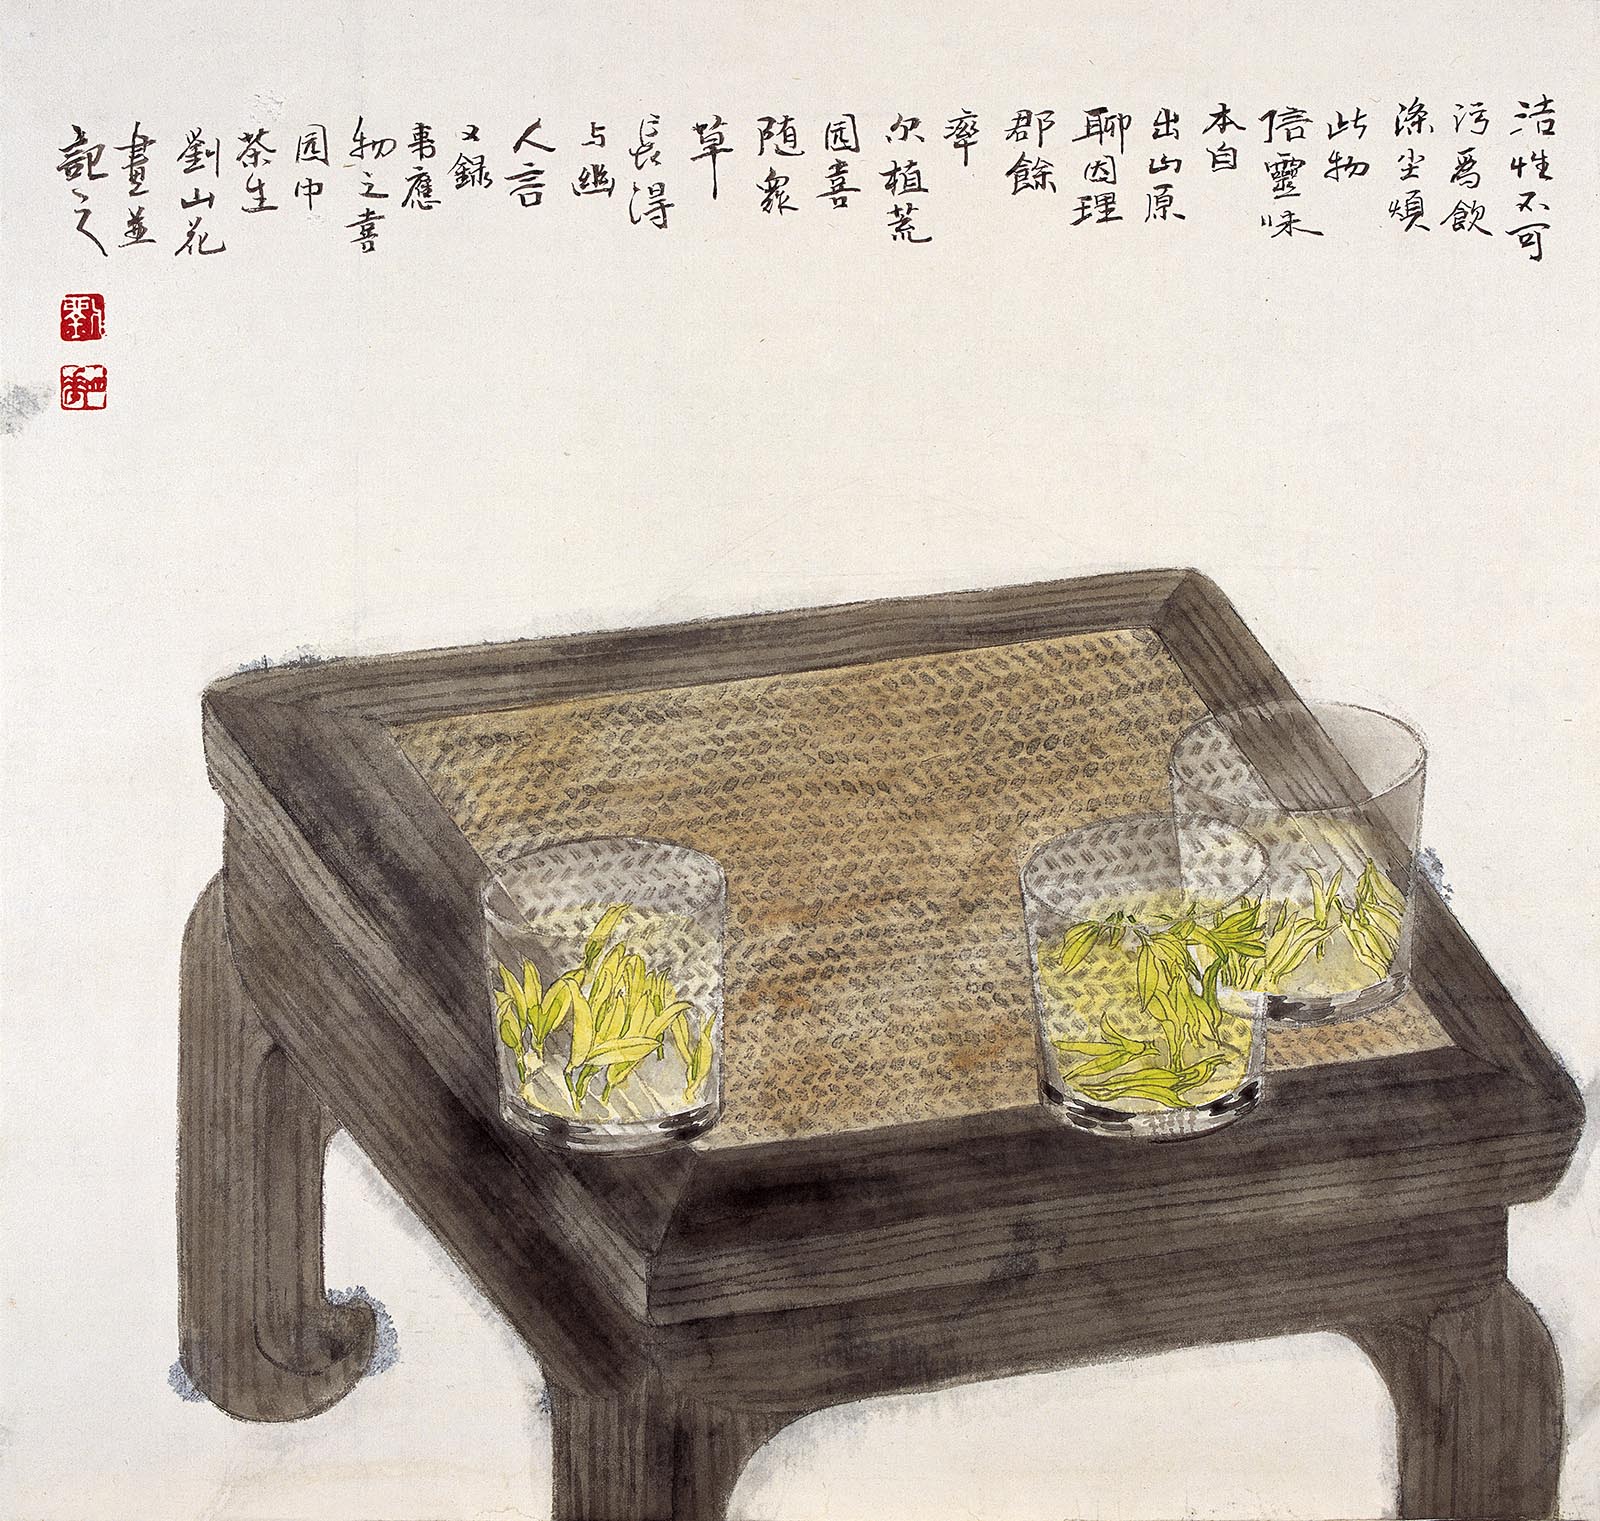 洁性不可
污爲飲
滌尘煩
此物
信靈味
本自
出山原
聊因理
郡餘
率
尔植荒
园喜
随眾
草
長得
与幽
人言
又録
韋應
物之喜
园中
茶生
劉山花
畫並
記之
劉